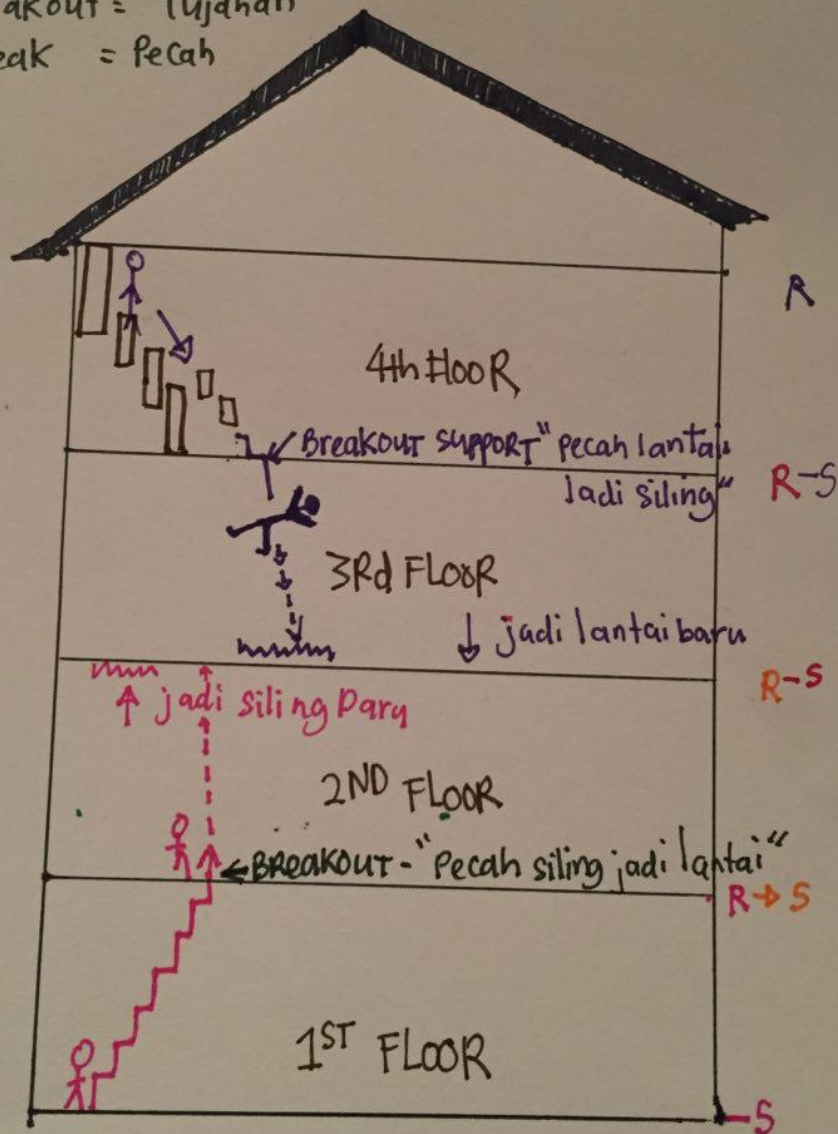 akout = Tujahan
eak = Pecah
R
4th FlooR
Breakout support "pecah lantai
Jadi siling"
R-S
3Rd FLOOR
jadi lantai baru
R-S
jadi siling Baru
2ND FLOOR
BREAKOUT - "Pecah siling jadi lantai"
R → S
1ST FLOOR
S